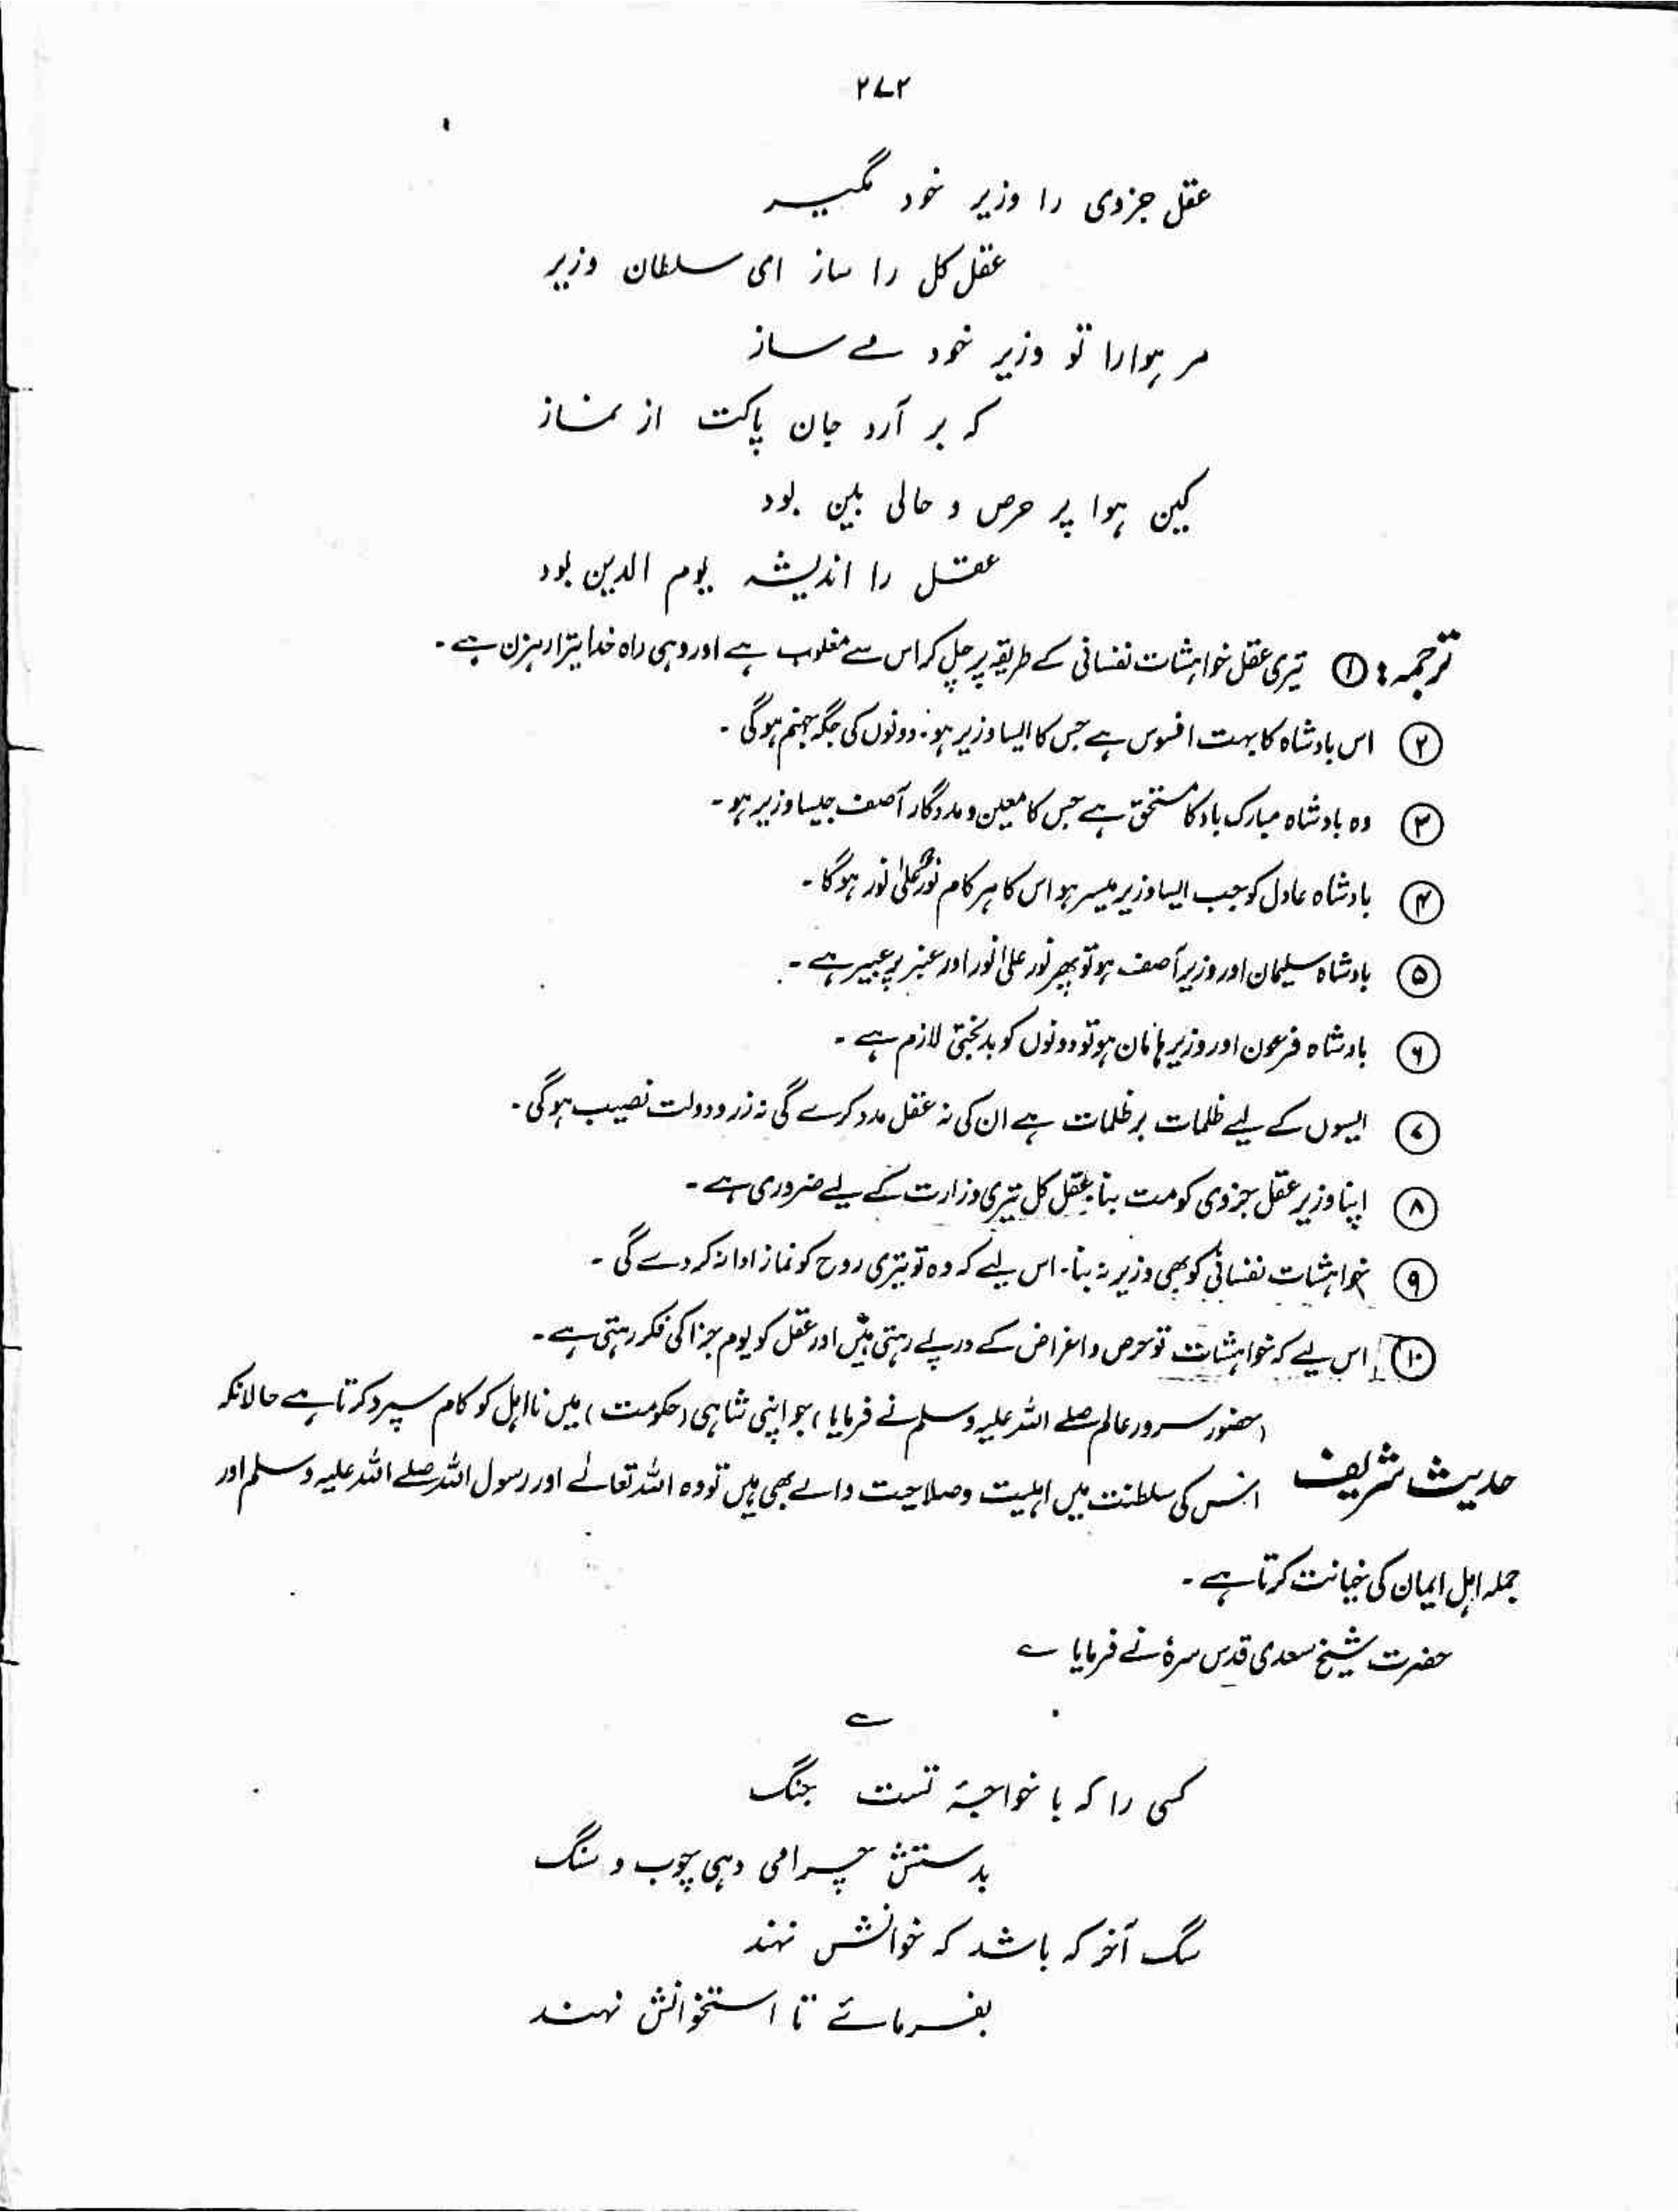 ۲۷۲
عقل جزوی را وزیر خود مگیر
عقل کل را ساز ای سلطان وزیر
مر ہوارا تو وزیر خود مے ساز
کہ بر آرد جان پاکت از نماز
کین ہوا پر حرص و حالی بین بود
عقل را اندیشہ یوم الدین بود
ترجمہ: ① تیری عقل خواہشات نفسانی کے طریقہ پر چل کر اس سے مغلوب ہے اور وہی راہ خدا تیرا رہزن ہے ۔
② اس بادشاہ کا بہت افسوس ہے جس کا ایسا وزیر ہو ۔ دونوں کی جگہ جہنم ہوگی ۔
③ وہ بادشاہ مبارک باد کا مستحق ہے جس کا معین و مددگار آصف جیسا وزیر ہو ۔
④ بادشاہ عادل کو جب ایسا وزیر میسر ہو اس کا ہر کام نورٌ علیٰ نور ہوگا ۔
⑤ بادشاہ سلیمان اور وزیر آصف ہو تو پھر نور علیٰ نور اور عنبر پر عبیر ہے ۔
⑥ بادشاہ فرعون اور وزیر ہامان ہو تو دونوں کو بدبختی لازم ہے ۔
⑦ ایسوں کے لیے ظلمات بر ظلمات ہے ان کی نہ عقل مدد کرے گی نہ زر و دولت نصیب ہوگی ۔
⑧ اپنا وزیر عقل جزوی کو مت بنا ۔ عقل کل تیری وزارت کے لیے ضروری ہے ۔
⑨ خواہشات نفسانی کو بھی وزیر نہ بنا ۔ اس لیے کہ وہ تو تیری روح کو نماز ادا نہ کردے گی ۔
⑩ اس لیے کہ خواہشات تو حرص و اغراض کے درپے رہتی ہیں اور عقل کو یوم جزا کی فکر رہتی ہے ۔
حدیث شریف (حضور سرور عالم صلے اللہ علیہ وسلم نے فرمایا) جو اپنی شاہی (حکومت) میں نااہل کو کام سپرد کرتا ہے حالانکہ
اس کی سلطنت میں اہلیت و صلاحیت والے بھی ہیں تو وہ اللہ تعالےٰ اور رسول اللہ صلے اللہ علیہ وسلم اور
جملہ اہل ایمان کی خیانت کرتا ہے ۔
حضرت شیخ سعدی قدس سرہٗ نے فرمایا ؎
؎
کسی را کہ با خواجۂ تست جنگ
بدستش چرامی دہی چوب و سنگ
سگ آخر کہ باشد کہ خوانش نہند
بفرمائے تا استخوانش نہند